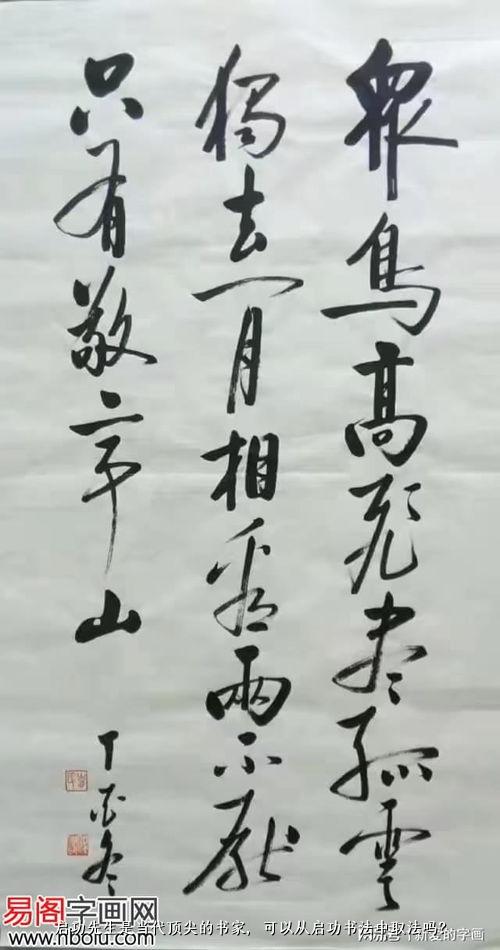 眾鳥高飛盡孤雲
獨去閒相看兩不厭
只有敬亭山
丁酉冬
易阁字画网
www.nboiu.com
启功先生是当代顶尖的书家，可以从启功书法中取法吗？
的字画